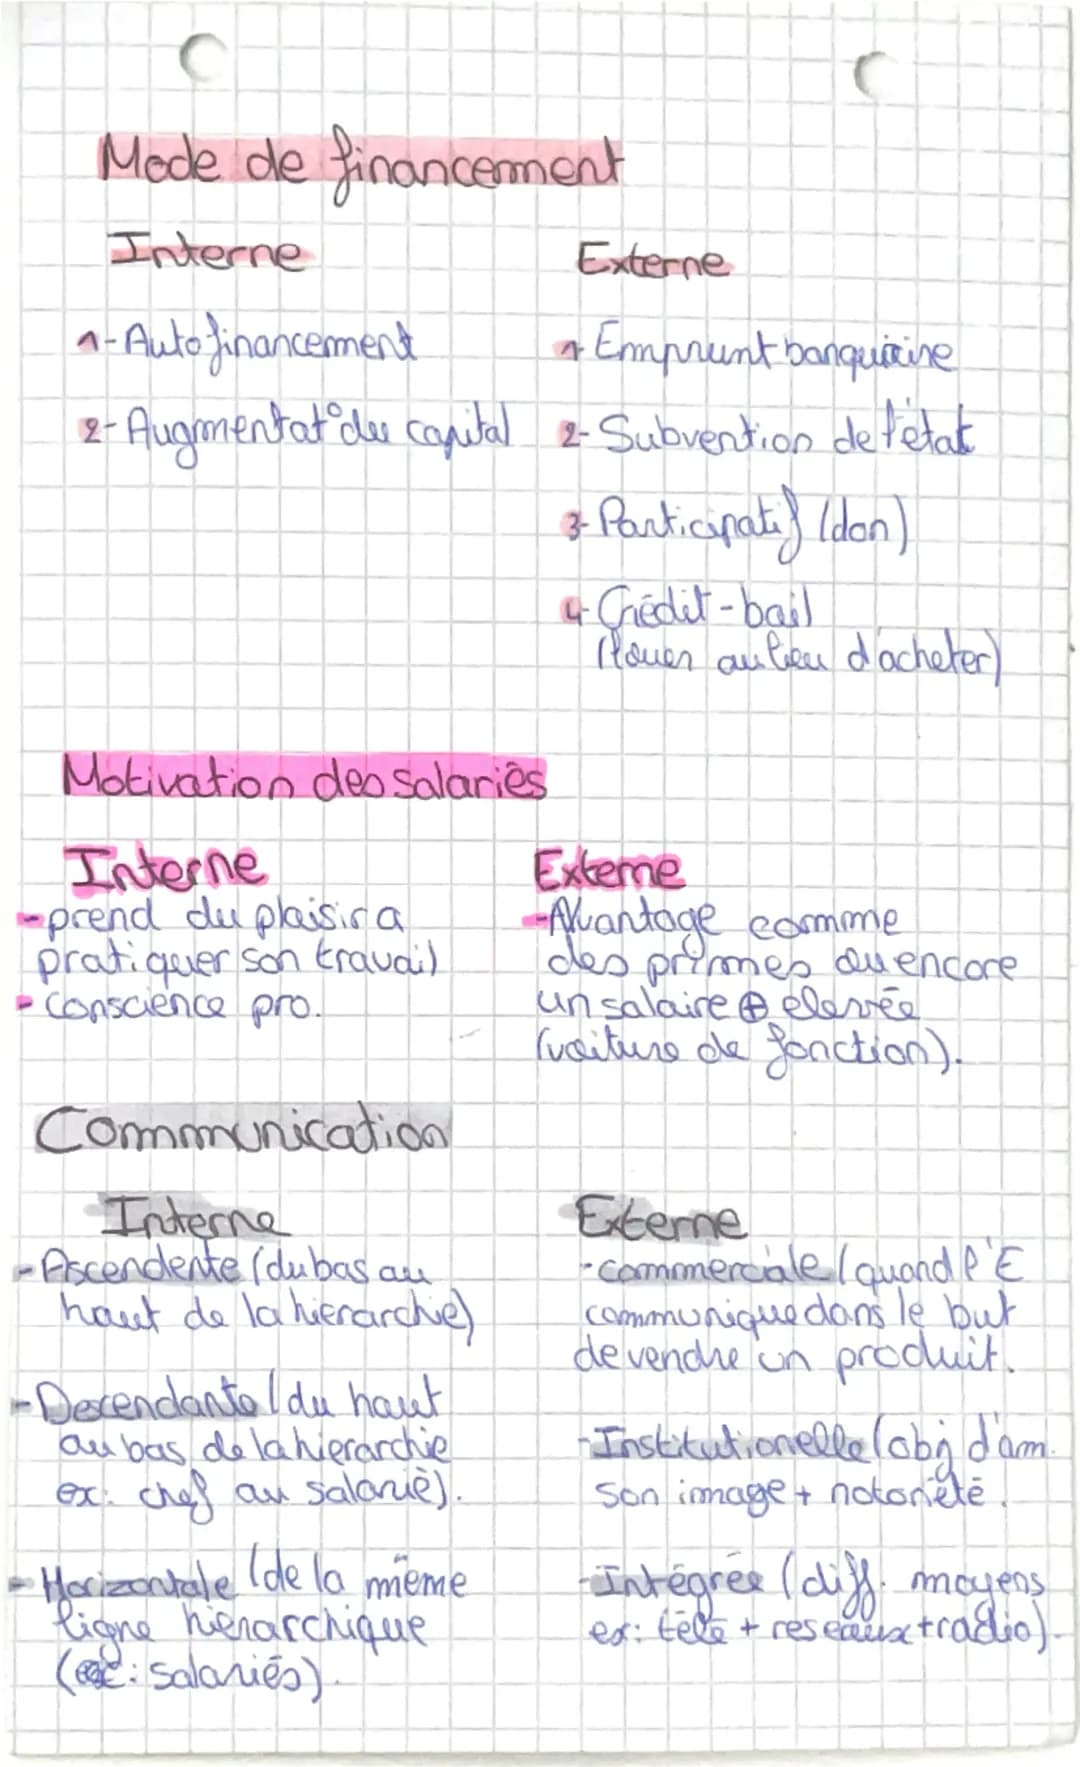 Mode de financement
Interne
1- Autofinancement
2- Augmentat° du capital
Externe
1- Emprunt banquaire
2- Subvention de l'état
3- Participatif (don)
4- Crédit-bail
(louer au lieu d'acheter)
Motivation des salariés
Interne
- prend du plaisir a
pratiquer son travail
- conscience pro.
Externe
- Avantage comme
des primes ou encore
un salaire ⊕ elevée
(voiture de fonction).
Communication
Interne
- Ascendente (du bas au
haut de la hierarchie)
- Descendante (du haut
au bas de la hierarchie
ex: chef au salarié).
- Horizontale (de la même
ligne hierarchique
(ex: salariés).
Externe
- commerciale (quand l'E
communique dans le but
de vendre un produit.
- Institutionelle (obj d'am.
son image + notoriété.
- Intégrée (diff. moyens
ex: télé + reseaux + radio).